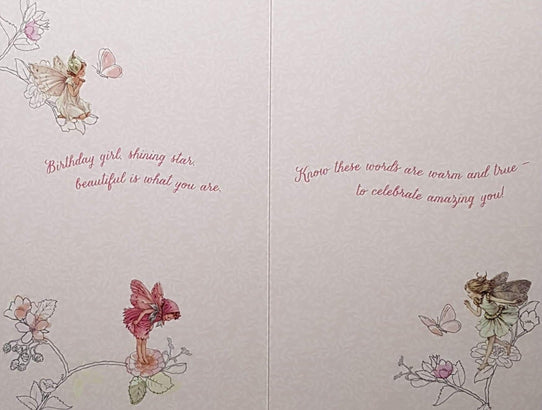 Birthday girl, shining star,
beautiful is what you are.
Know these words are warm and true –
to celebrate amazing you!